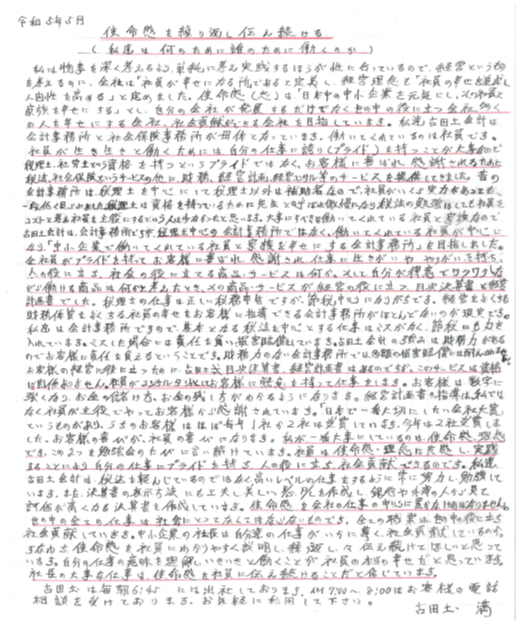 令和5年5月
使命感を繰り返し伝え続ける
(私達は何のために誰のために働くのか)
私は物事を深く考えるより、単純に考え実践するほうが性に合っているので、経営という
を考えるのに、会社は「社員が幸せになる所」であると定義し、経営理念を「社員の幸せを追求し
人間性を高める」と定めました。使命感(志)は「日本中の中小企業を元気にし、その社員と
家族を幸せにする」とし、自分の会社が発展するだけでなく世の中の役に立つ会社、働く
人を幸せにする会社、社会貢献ができる会社を目指しています。私達古田土会計は
会計事務所と社会保険事務所が母体となっています。働いてくれているのは社員です。
社員が生き生きと働くためには自分の仕事に誇り(プライド)を持つことが大事なので
税理士、社労士という資格を持つというプライドではなく、お客様に喜ばれ感謝されるために
税法、社会保険というサービスの他に、財務、経営計画、のサービスを提供してきました。昔の
会計事務所は、税理士を中心にして税理士以外は補助者なので、社員がいくら実力があっても
税理士は資格を持っているために先生と呼ばれ
コストと考え
古田土会計は、会計事務所ですが税理士中心の会計事務所ではなく、働いてくれている社員が中心に
なり「中小企業で働いてくれている社員と家族を幸せにする会計事務所」を目指しました。
全社員がプライドを持ってお客様に喜ばれ感謝され、仕事に生きがいややりがいを持ち、
人の役に立ち、社会の役に立てる商品・サービスは何か、そして自分が得意でワクワクしな
がら働ける商品は何かと考えたとき、その商品・サービスが経営の役に立つ月次決算書と経営
計画書でした。税理士の仕事は正しい税務申告ですが、節税中心になりがちです。経営をよくする
財務体質をよくする社員の幸せをお客様に指導できる会計事務所がほとんどないのが現実です。
私達は会計事務所ですので、基本となる税法を中心とする仕事はミスがなく、節税にも力を
入れています。ミスした場合には責任を負い損害賠償しています。古田土会計の強みは財務力がある
のでお客様に責任を負えるということです。財務力のない会計事務所では
お客様の経営の役に立つために、古田土式月次決算書、経営計画書はあるのですが、このサービスは資格
は関係ありません。社員がお客様に誇りを持って仕事をします。お客様は数字に
強くなり、お金の借り方、お金の残し方がわかるようになります。経営計画書の指導は、私では
なく社員が主役でやってお客様から感謝されています。「日本で一番大切にしたい会社大賞」
というものがあり、うちのお客様はほぼ毎年1社か2社は受賞しています。今年は2社受賞しま
した。お客様の喜びが、社員の喜びになります。私が一番大事にしているのは使命感、理念
です。この2つを勉強会のたびに言い続けています。社員は使命感・理念に共感し、実践
することにより自分の仕事にプライドを持ち、人の役に立ち社会貢献できるのです。私達
古田土会計は、税法を軽んじているのではなく、高いレベルの仕事をするように常に努力し勉強して
います。また、決算書の表示方法にも工夫し美しい
評価が高くなる決算書を作成しています。使命感を会社の中心に置かなければなりません。
世の中の全ての仕事は社会にとってなくてはならないものです。全ての職業は世の中の役に立ち
社会貢献しています。中小企業の社長は自分達の仕事がいかに尊く社会貢献しているのか、
すなわち使命感を社員にわかりやすく説明し、繰り返し伝え続けてほしいと思って
います。自分の仕事の意味を理解しいきいきと働くことが社員の本当の幸せだと思っています。
社長の大事な仕事は、使命感を社員に伝え続けることだと信じています。
古田土は毎朝6:45には出社しております。AM7:00～8:00はお客様の電話
相談を受けております。お気軽に利用して下さい。
古田土 満